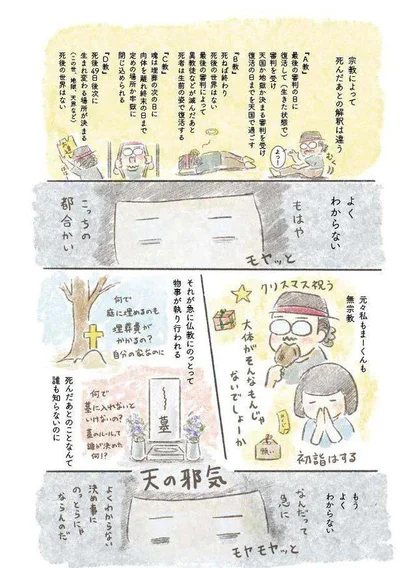 宗教によって
死んだあとの解釈は違う
「A教」
最後の審判の日に
復活して(生きた状態で)
審判を受け
天国か地獄か決まる審判を受け
復活の日までを天国で過ごす
「B教」
死ねば終わり
最後の審判によって
異教徒などが滅んだあと
死者は生前の姿で復活する
「C教」
魂は埋葬の次の日に
肉体を離れ終末の日まで
定めの場所か牢獄に
閉じ込められる
「D教」
死後49日後次に
生まれ変わる場所が決まる
(この世、地獄、天界など)
死後の世界はない
よっ
よく
わからない
もはや
こっちの
都合かい
モヤッと
元々私もまーくんも
無宗教
クリスマス祝う
大体がそんなもんじゃ
ないでしょーか
初詣はする
それが急に仏教にのっとって
物事が執り行われる
何で
庭に埋めるのも
埋葬費が
かかるの?
自分の家なのに
何で
墓に入れないと
いけないの?
墓のルールって
誰が決めた
何!?
墓
死んだあとのことなんて
誰も知らないのに
天の邪気
もう
よく
わからない
なんだって
急に
よくわからない
決め事に
のっとらにゃ
ならんのだ
モヤモヤッと